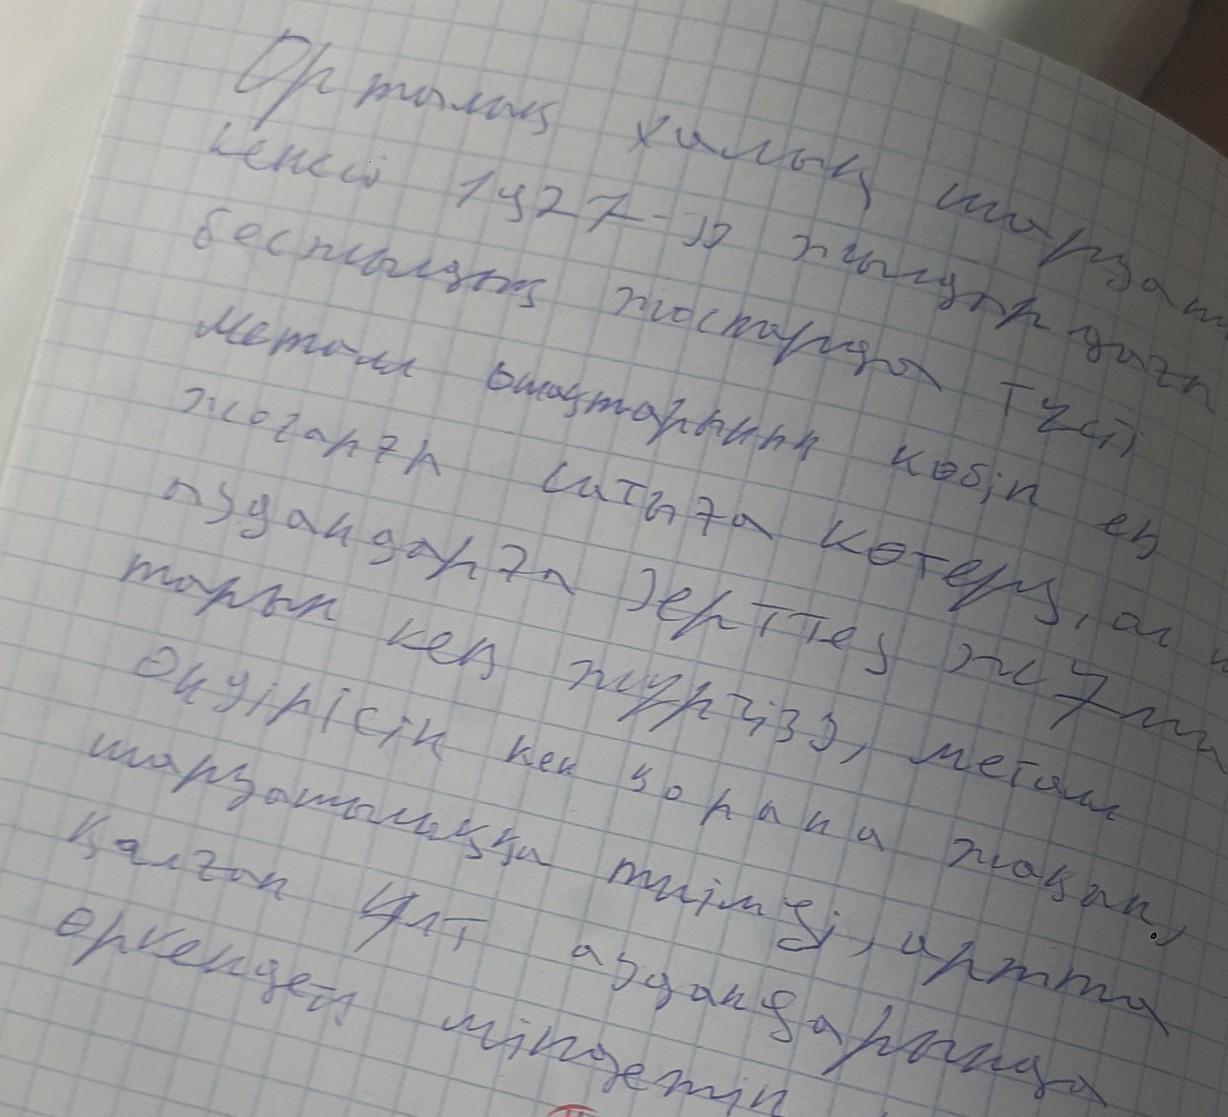 Орталық халық шаруаш
кеңесі 1927-33 жылдардағы
бесжылдық жоспарда түсті
металл өнімдерінің көбін ең
жоғарғы сатыға көтеру, ал
аудандарға зерттеу жұмыс
тарын кең жүргізу, металл
өндірісін кен қорына жақын,
шаруашылыққа тиімді, артта
қалған ұлт аудандарында
өркендету міндетін